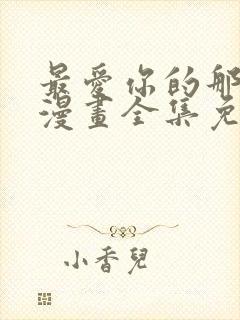 最愛你的那
漫畫全集免
小香兒